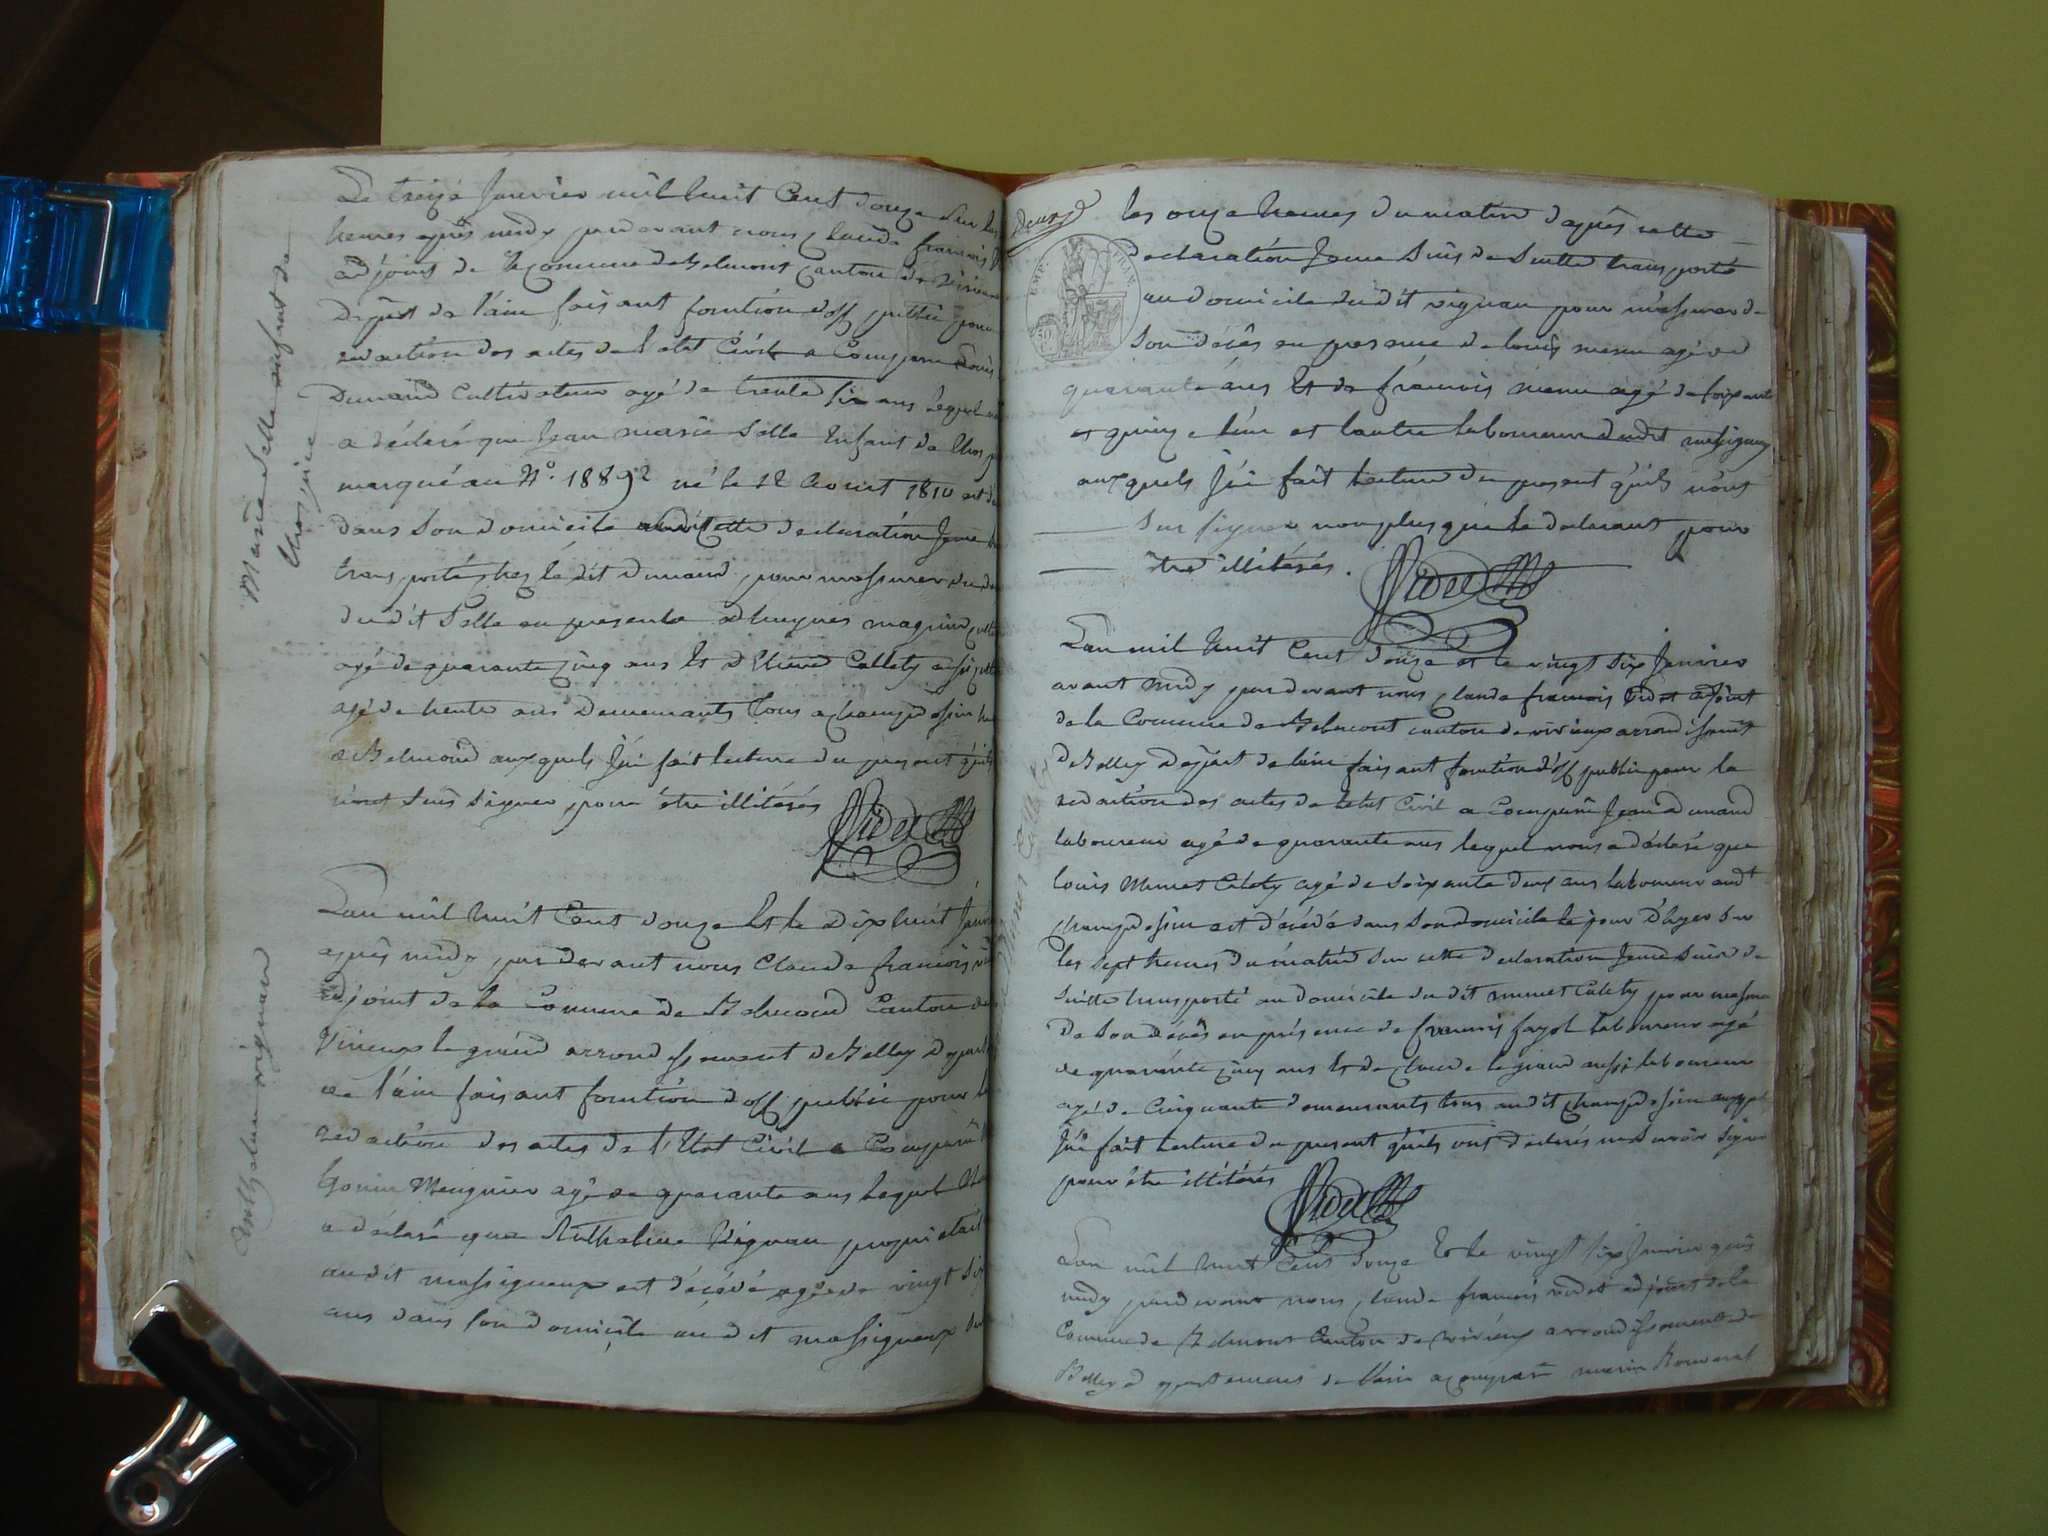 Marie Selle enfant de
l'hospice
Le treize Janvier mil huit Cent douze Sur les
heures après midy pardevant nous Claude francois
adjoint de la Commune de Belmont Canton de Virieux
Depart de l'ain faisant fonction d'off public pour
redaction des actes de l'etat Civil a Comparu Louis
Dumand Cultivateur agé de trente six ans lequel
a déclaré que Jean marie Selle Enfant de l'hos
marqué au N° 1889 né le 12 Aoust 1810 est
dans Son domicile Cette declaration Je me
transporté chez le dit dumand pour massurer du
dudit Selle en presence d'hugues magnin
agé de quarante cinq ans Et d'Etienne Callety aussi
agé de trente ans Demeurants tous a champdossin
a Belmond auxquels J'ai fait lecture du present qu'ils
n'ont Seus Signer pour être illitérés
Videt
Anthelme vignan
L'an mil huit Cent douze Et le dix huit Janv
après midy pardevant nous Claude francois
adjoint de la Commune de Belmond Canton de
Virieux le grand arrondissement de Belley depart
de l'ain faisant fonction d'off public pour la
redaction des actes de l'Etat Civil a Comparu
Meignier agé de quarante ans lequel
a déclaré que Anthelme Vignan propriétaire
audit massigneux est décédé agé de vingt six
ans dans son domicile audit massigneux Sur
Deux
EMP. FRAN.
les onze heures du matin d'après cette
declaration Je me Suis de Suitte transporté
au domicile dudit vignan pour m'assurer de
Son décès en presence de louis agé de
quarante ans Et de francois agé de soixante
et quinze l'un et l'autre laboureur dudit massigneux
auxquels J'ai fait lecture du present qu'ils n'ont
Sus signer non plus que le declarant pour
être illitérés.
Videt
L'an mil huit Cent douze et le vingt six Janvier
avant midy pardevant nous Claude francois Videt adjoint
de la Commune de Belmont canton de virieux arrondissemt
de Belley Depart de l'ain faisant fonction d'off public pour la
redaction des actes de l'etat Civil a Comparu Jean dumand
laboureur agé de quarante ans lequel nous a déclaré que
louis Munet Calety agé de Soixante deux ans laboureur audt
champdossin est décédé dans Son domicile le jour d'hyer Sur
les Sept heures du matin Sur cette declaration Je me Suis de
Suitte transporté au domicile du dit munet Calety pour massurer
de Son décès en présence de francois fayol laboureur agé
de quarante cinq ans Et de claude legrand aussi laboureur
agé de Cinquante demeurants tous audit champdossin auxquels
J'ai fait lecture du present qu'ils ont declarés ne Savoir Signer
pour être illitérés
Videt
L'an mil huit Cent douze Et le vingt six Janvier après
midy pardevant nous claude francois videt adjoint de la
Commune de Belmont Canton de virieux arrondissement de
Belley departement de l'ain a comparu